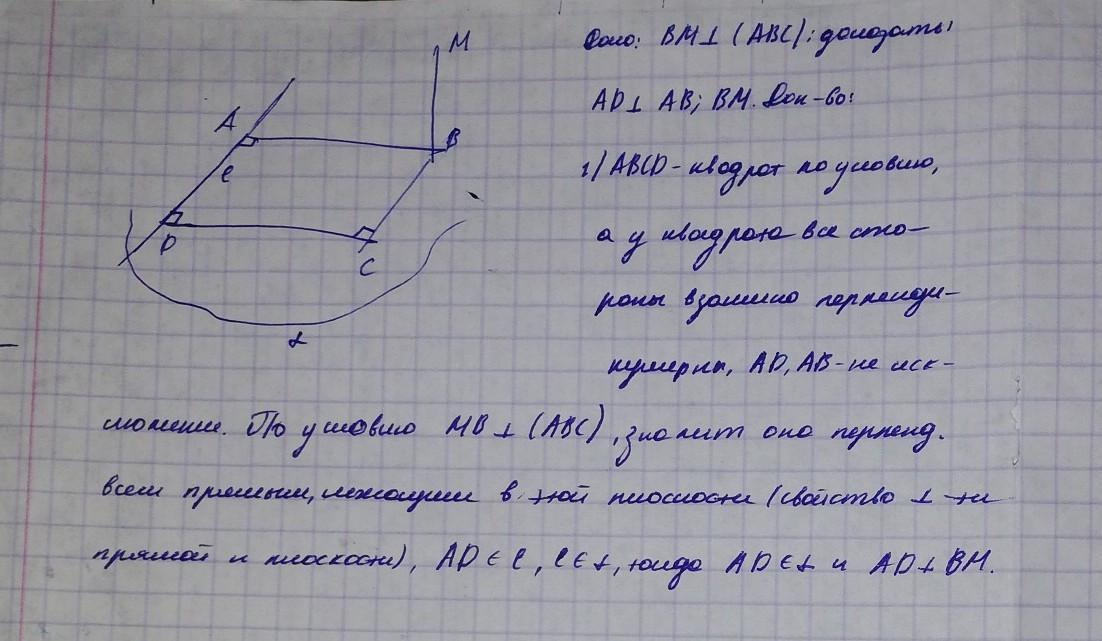 M
Дано: BM⊥ (ABC); доказать:
A
B
AD⊥ AB; BM. Док-во:
e
1) ABCD - квадрат по условию,
D
C
а у квадрата все сто-
роны взаимно перпенди-
α
кулярны, AD, AB - не иск-
лючение. По условию MB ⊥ (ABC), значит она перпенд.
всем прямым, лежащим в этой плоскости (свойство ⊥-ти
прямой и плоскости), AD ∈ l, l ∈ α, тогда AD ∈ α и AD ⊥ BM.